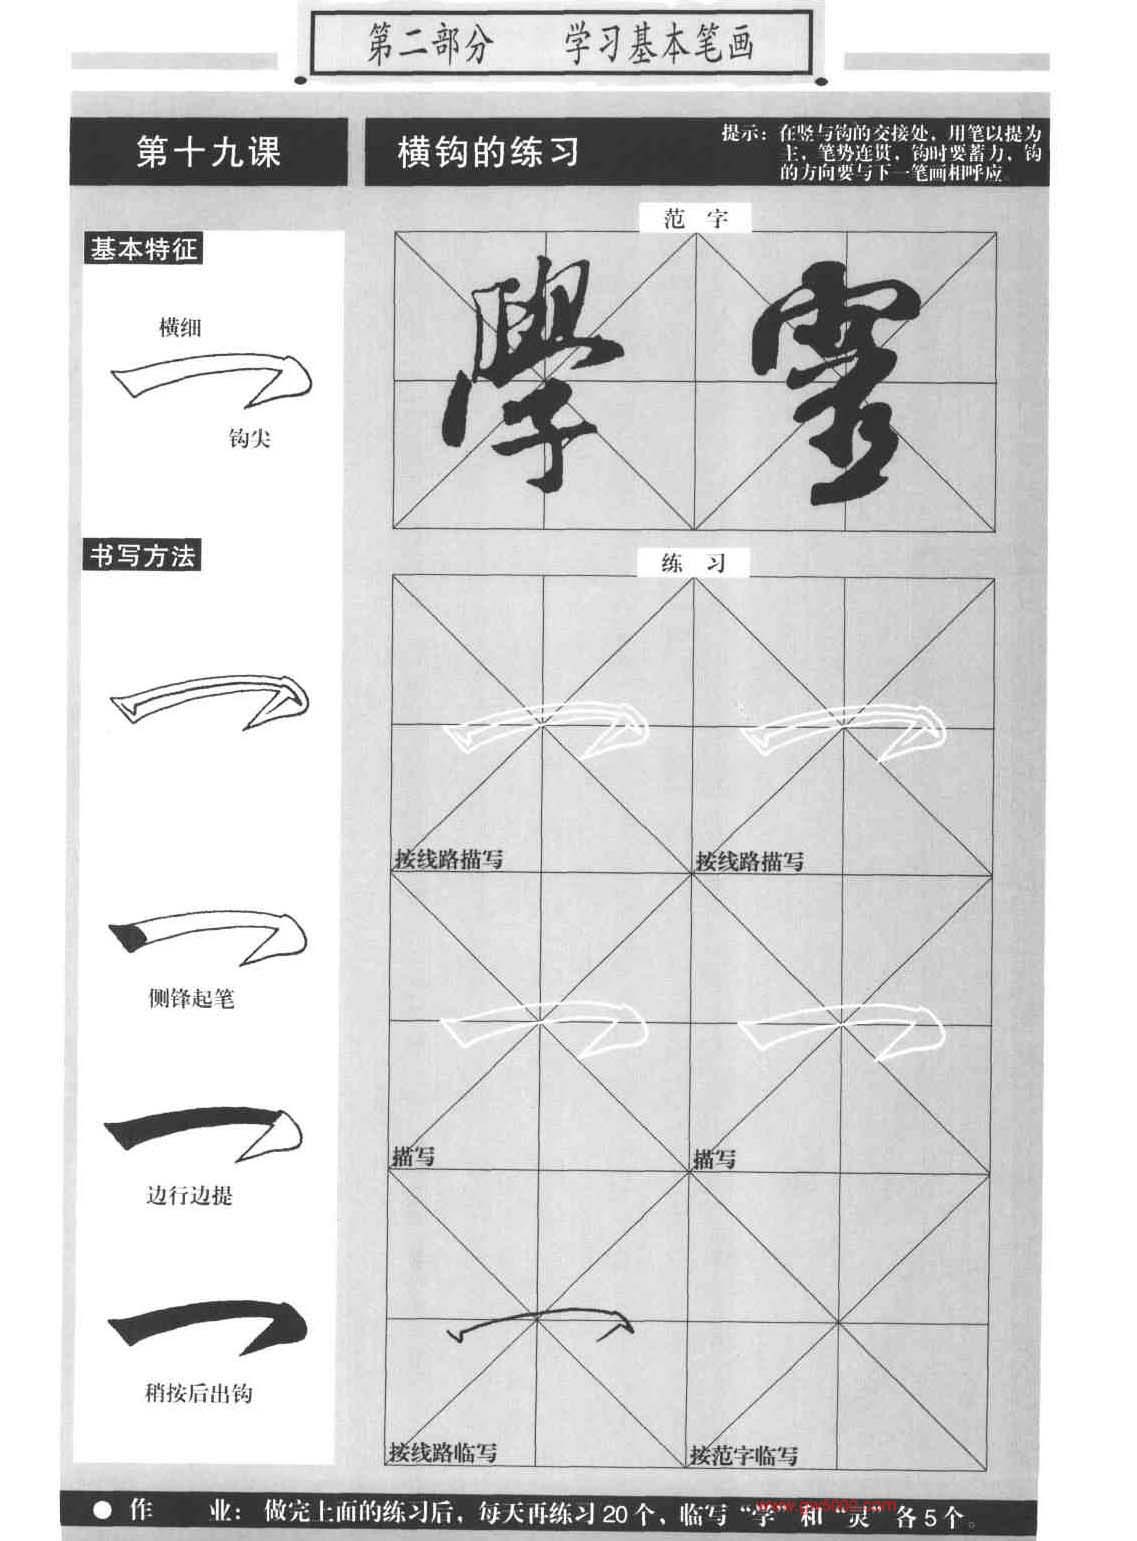 第二部分 学习基本笔画
第十九课
横钩的练习
提示：在竖与钩的交接处，用笔以提为
主，笔势连贯，钩时要蓄力，钩
的方向要与下一笔画相呼应。
基本特征
横细
钩尖
书写方法
侧锋起笔
边行边提
稍按后出钩
范 字
學 靈
练 习
按线路描写 按线路描写
描写 描写
按线路临写 按范字临写
● 作 业：做完上面的练习后，每天再练习20个，临写“学”和“灵”各5个。